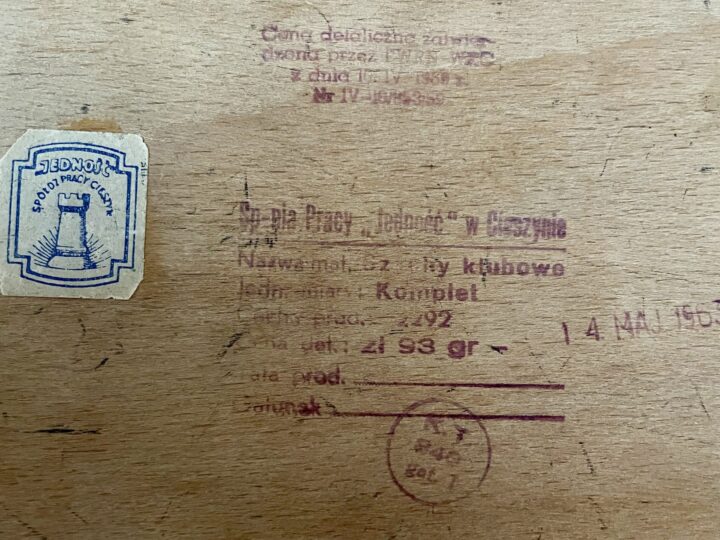 Cena detaliczna zatwier-
dzona przez PWRN WZC
z dnia IV
Nr IV
JEDNOŚĆ
SPÓŁDZ PRACY CIESZYN
Sp-nia Pracy „Jedność” w Cieszynie
Nazwa mat. Szachy klubowe
Jedn. miary: Komplet
Cechy prod. 2292
Cena det.: zł 93 gr -
Data prod.
Gatunek
14 MAJ 1963
K.T
gat 1